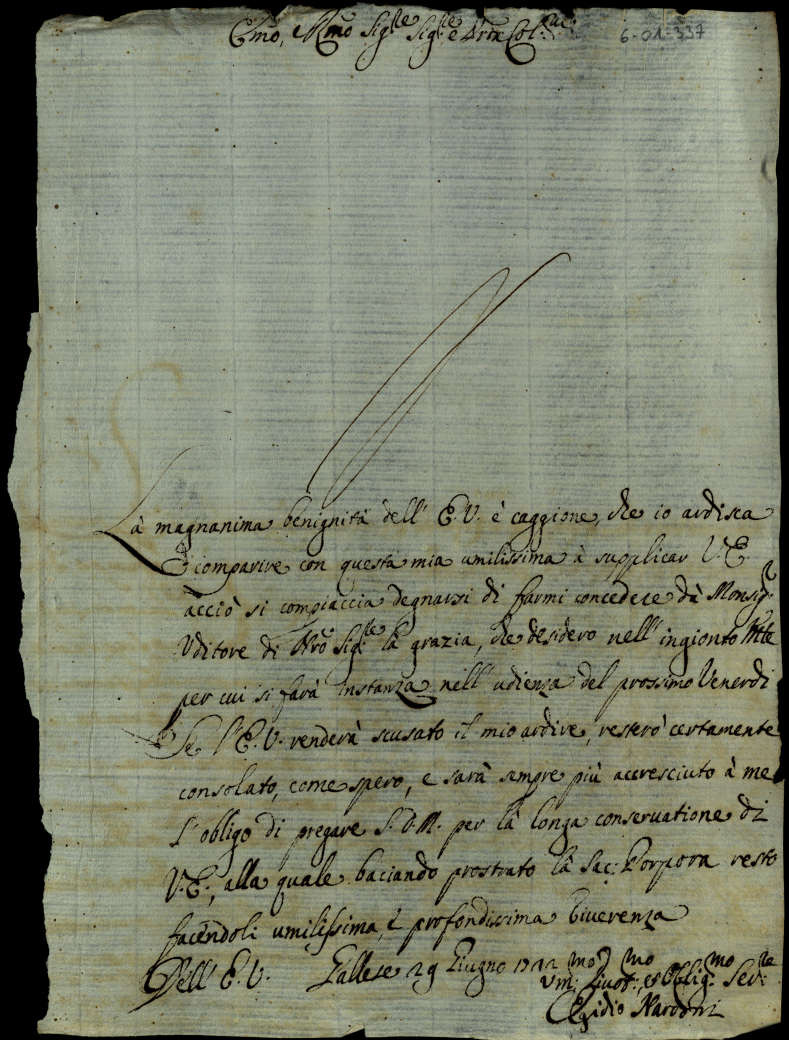 Emo, e Rmo Sig.re Sig.re e Pron Col.mo
6-01-337
La magnanima benignità dell' E.V. è caggione, che io ardisca
di comparire con questa mia umilissima à supplicar V.E.
acciò si compiaccia degnarsi di farmi concedere dà Monsig.r
Uditore di Nrõ Sig.re la grazia, che desidero nell' ingionto Mle
per cui si farà instanza nell' udienza del prossimo Venerdi
Se l' E.V. renderà scusato il mio ardire, resterò certamente
consolato, come spero, e sarà sempre più accresciuto à me
l' obligo di pregare S.D.M. per la longa conservatione di
V.E., alla quale baciando prostrato la Sac: Porpora resto
facendoli umilissima, e profondissima riverenza
Dell' E.V. Gallese 29 Giugno
Um.mo Divot.mo, et Oblig.mo Ser.re
Egidio Nardoni